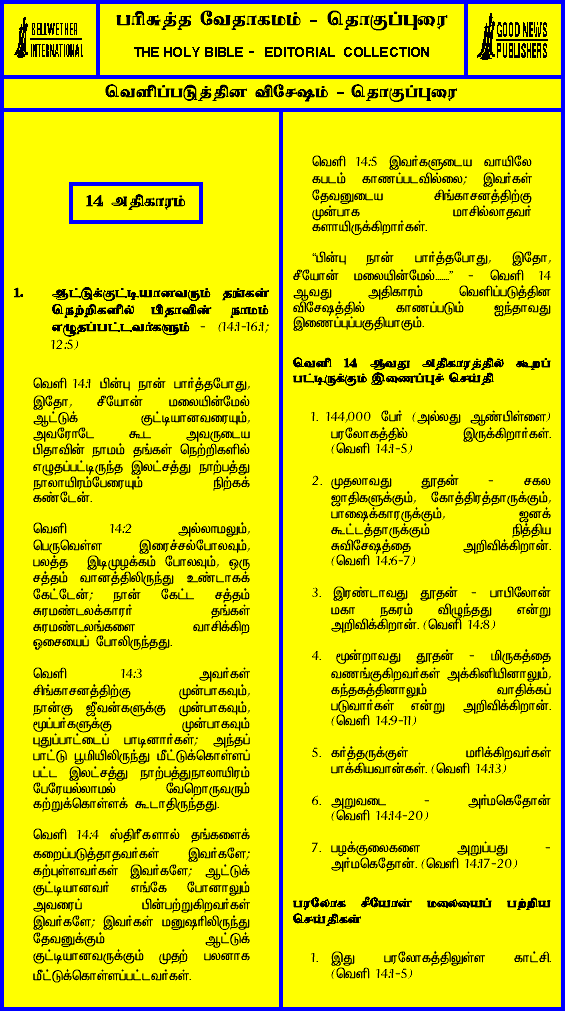 BELLWETHER
INTERNATIONAL
பரிசுத்த வேதாகமம் - தொகுப்புரை
THE HOLY BIBLE - EDITORIAL COLLECTION
GOOD NEWS
PUBLISHERS
வெளிப்படுத்தின விசேஷம் - தொகுப்புரை
14 அதிகாரம்
1. ஆட்டுக்குட்டியானவரும் தங்கள்
நெற்றிகளில் பிதாவின் நாமம்
எழுதப்பட்டவர்களும் - (14:1-16:1;
12:5)
வெளி 14:1 பின்பு நான் பார்த்தபோது,
இதோ, சீயோன் மலையின்மேல்
ஆட்டுக் குட்டியானவரையும்,
அவரோடே கூட அவருடைய
பிதாவின் நாமம் தங்கள் நெற்றிகளில்
எழுதப்பட்டிருந்த இலட்சத்து நாற்பத்து
நாலாயிரம்பேரையும் நிற்கக்
கண்டேன்.
வெளி 14:2 அல்லாமலும்,
பெருவெள்ள இரைச்சல்போலவும்,
பலத்த இடிமுழக்கம் போலவும், ஒரு
சத்தம் வானத்திலிருந்து உண்டாகக்
கேட்டேன்; நான் கேட்ட சத்தம்
சுரமண்டலக்காரர் தங்கள்
சுரமண்டலங்களை வாசிக்கிற
ஓசையைப் போலிருந்தது.
வெளி 14:3 அவர்கள்
சிங்காசனத்திற்கு முன்பாகவும்,
நான்கு ஜீவன்களுக்கு முன்பாகவும்,
மூப்பர்களுக்கு முன்பாகவும்
புதுப்பாட்டைப் பாடினார்கள்; அந்தப்
பாட்டு பூமியிலிருந்து மீட்டுக்கொள்ளப்
பட்ட இலட்சத்து நாற்பத்துநாலாயிரம்
பேரேயல்லாமல் வேறொருவரும்
கற்றுக்கொள்ளக் கூடாதிருந்தது.
வெளி 14:4 ஸ்திரீகளால் தங்களைக்
கறைப்படுத்தாதவர்கள் இவர்களே;
கற்புள்ளவர்கள் இவர்களே; ஆட்டுக்
குட்டியானவர் எங்கே போனாலும்
அவரைப் பின்பற்றுகிறவர்கள்
இவர்களே; இவர்கள் மனுஷரிலிருந்து
தேவனுக்கும் ஆட்டுக்
குட்டியானவருக்கும் முதற் பலனாக
மீட்டுக்கொள்ளப்பட்டவர்கள்.
வெளி 14:5 இவர்களுடைய வாயிலே
கபடம் காணப்படவில்லை; இவர்கள்
தேவனுடைய சிங்காசனத்திற்கு
முன்பாக மாசில்லாதவர்
களாயிருக்கிறார்கள்.
“பின்பு நான் பார்த்தபோது, இதோ,
சீயோன் மலையின்மேல்.......” - வெளி 14
ஆவது அதிகாரம் வெளிப்படுத்தின
விசேஷத்தில் காணப்படும் ஐந்தாவது
இணைப்புப்பகுதியாகும்.
வெளி 14 ஆவது அதிகாரத்தில் கூறப்
பட்டிருக்கும் இணைப்புச் செய்தி
1. 144,000 பேர் (அல்லது ஆண்பிள்ளை)
பரலோகத்தில் இருக்கிறார்கள்.
(வெளி 14:1-5)
2. முதலாவது தூதன் - சகல
ஜாதிகளுக்கும், கோத்திரத்தாருக்கும்,
பாஷைக்காரருக்கும், ஜனக்
கூட்டத்தாருக்கும் நித்திய
சுவிசேஷத்தை அறிவிக்கிறான்.
(வெளி 14:6-7)
3. இரண்டாவது தூதன் - பாபிலோன்
மகா நகரம் விழுந்தது என்று
அறிவிக்கிறான். (வெளி 14:8)
4. மூன்றாவது தூதன் - மிருகத்தை
வணங்குகிறவர்கள் அக்கினியினாலும்,
கந்தகத்தினாலும் வாதிக்கப்
படுவார்கள் என்று அறிவிக்கிறான்.
(வெளி 14:9-11)
5. கர்த்தருக்குள் மரிக்கிறவர்கள்
பாக்கியவான்கள். (வெளி 14:13)
6. அறுவடை - அர்மகெதோன்
(வெளி 14:14-20)
7. பழக்குலைகளை அறுப்பது -
அர்மகெதோன். (வெளி 14:17-20)
பரலோக சீயோன் மலையைப் பற்றிய
செய்திகள்
1. இது பரலோகத்திலுள்ள காட்சி.
(வெளி 14:1-5)